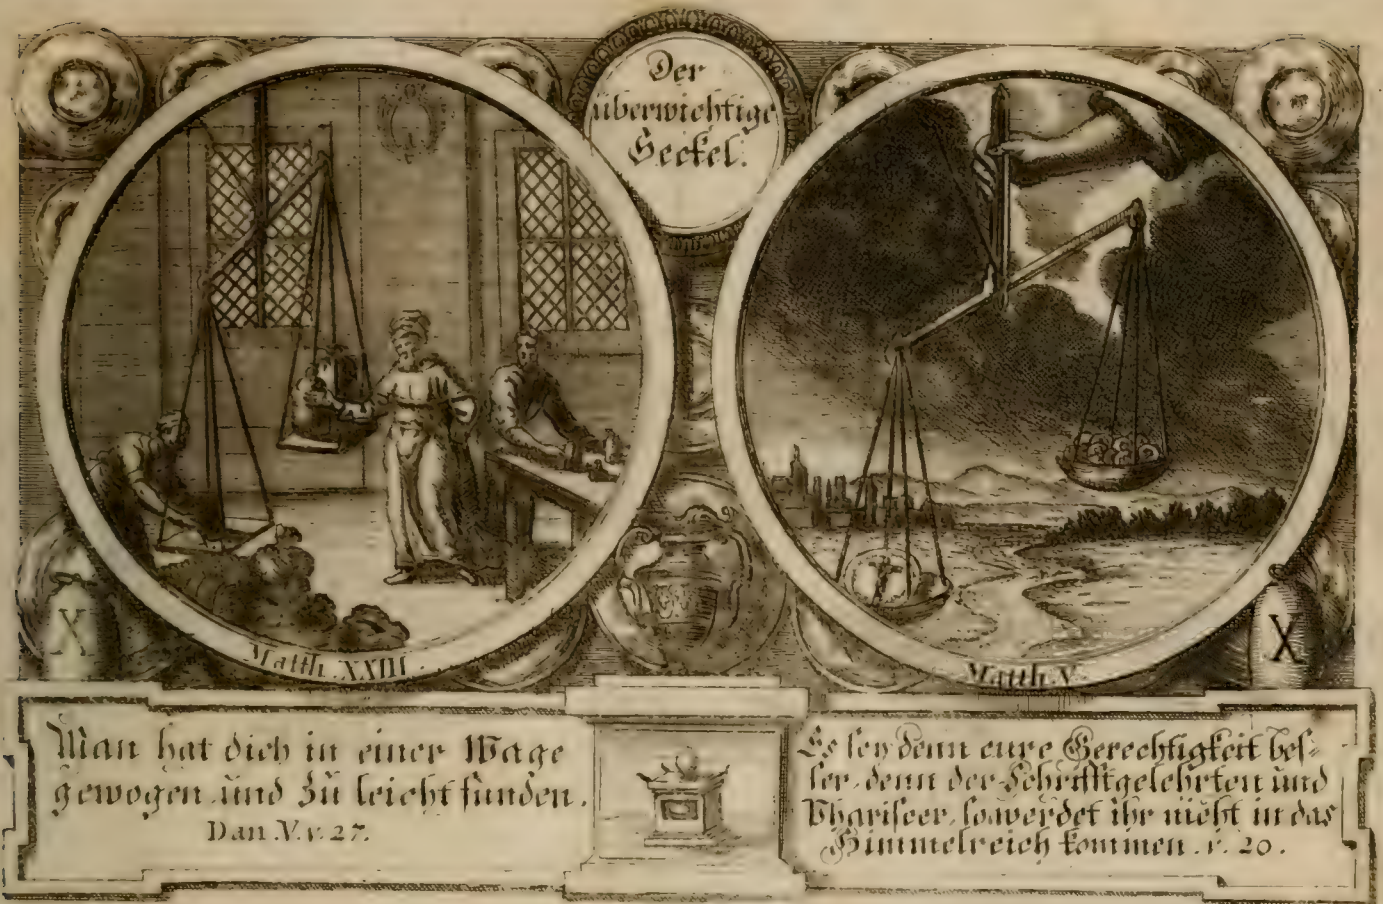 Der
überwichtige
Seckel.
Matth. XXIII.
Matth. V.
X
X
Man hat dich in einer Wage
gewogen und zu leicht funden.
Dan. V. v. 27.
Es sey denn eure Gerechtigkeit bes-
ser, denn der Schrifftgelehrten und
Phariseer, so werdet ihr nicht in das
Himmelreich kommen. v. 20.